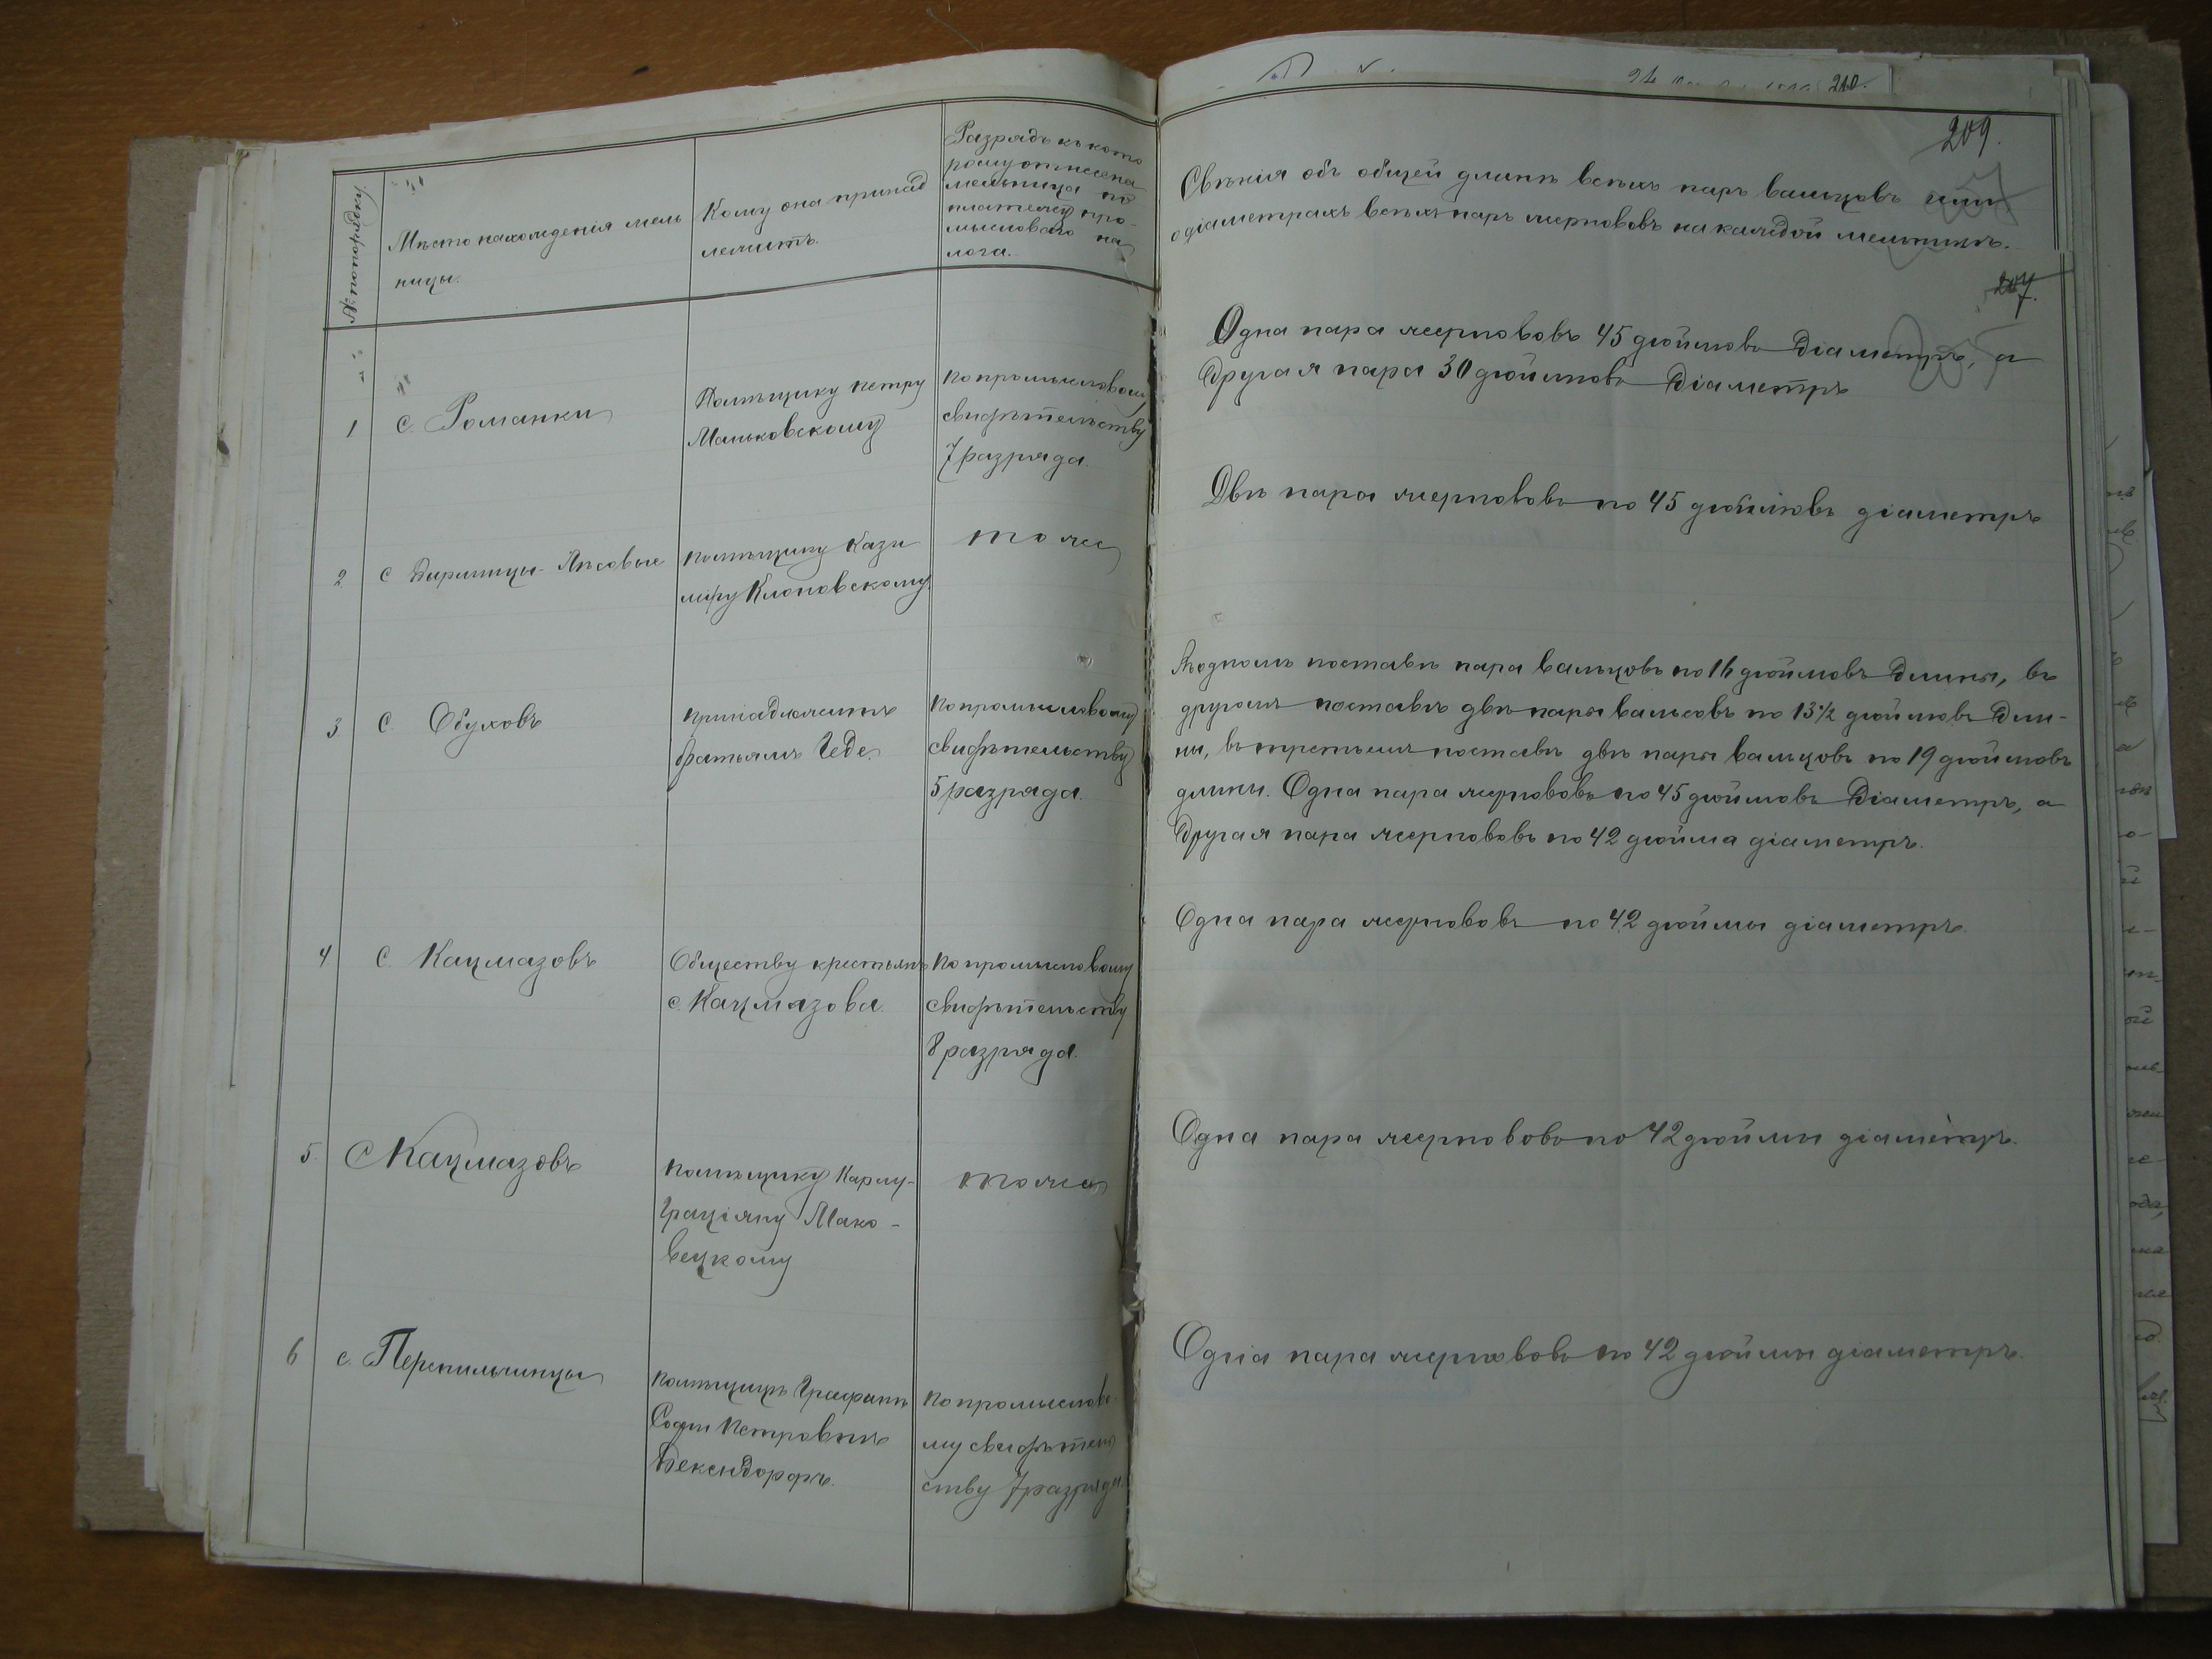 210.
209.
207.
№ по порядку.
Мѣсто нахожденія мель
ницы.
Кому она принад
лежитъ.
Разрядъ къ кото
рому отнесена
мельница по
платежу про-
мысловаго на
лога.
Свѣнія объ общей длинѣ всѣхъ паръ вальцовъ или
о діаметрахъ всѣхъ паръ жерновъ на каждой мельницѣ.
1
с. Романки
Помѣщику Петру
Маньковскому
по промысловому
свидѣтельству
7 разряда.
Одна пара жернововъ 45 дюймовъ діаметръ, а
другая пара 30 дюймовъ діаметръ
2
с Биричицы-Лѣсовые
помѣщику Кази
міру Клоповскому.
тоже
Двѣ пара жернововъ по 45 дюймовъ діаметръ
3
с. Обуховъ
принадлежитъ
братьямъ Геде.
по промысловому
свидѣтельству
5 разряда.
Въ одномъ поставѣ пара вальцовъ по 16 дюймовъ длины, въ
другомъ поставѣ двѣ пары вальсовъ по 13½ дюймовъ дли-
ны, въ третьемъ поставѣ двѣ пары вальцовъ по 19 дюймовъ
длины. Одна пара жернововъ по 45 дюймовъ діаметръ, а
другая пара жернововъ по 42 дюйма діаметръ.
4
с. Кацмазовъ
Обществу крестьянъ
с. Кацмазова.
по промысловому
свидѣтельству
8 разряда.
Одна пара жернововъ по 42 дюймы діаметръ.
5.
с Кацмазовъ
помѣщику Карлу-
Граціяну Мако-
вецкому
тоже
Одна пара жернововъ по 42 дюймы діаметръ.
6
с. Перепильчинцы
помѣщицѣ Графинѣ
Софіи Петровнѣ
Бекендорфъ.
по промыслово-
му свидѣтель
ству 7 разряда.
Одна пара жернововъ по 42 дюймы діаметръ.